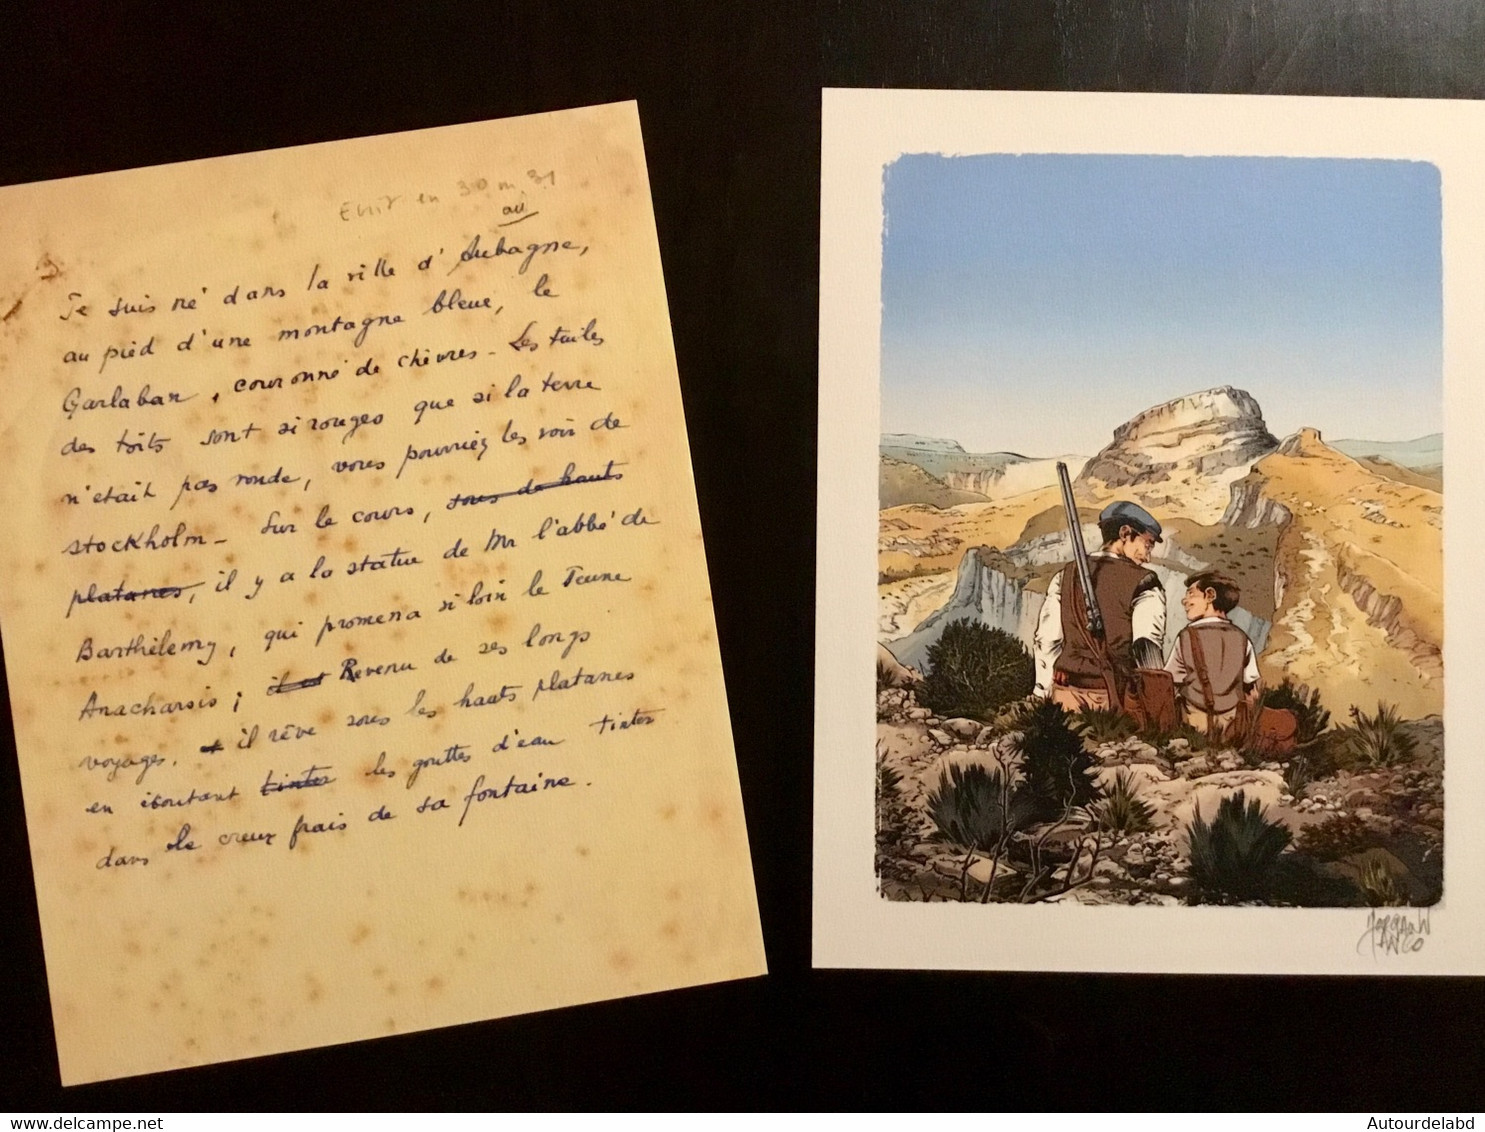 Ecrit en 30 m. 31
au
Je suis né dans la ville d'Aubagne,
au pied d'une montagne bleue, le
Garlaban, couronné de chèvres - Les tuiles
des toits sont si rouges que si la terre
n'était pas ronde, vous pourriez les voir de
stockholm - Sur le cours, sous de hauts
platanes, il y a la statue de Mr l'abbé de
Barthélemy, qui promena si loin le Jeune
Anacharsis ; il est Revenu de ses longs
voyages. et il rêve sous les hauts platanes
en écoutant tinter les gouttes d'eau tinter
dans le creux frais de sa fontaine.
MORGANN
TANCO
www.delcampe.net
Autourdelabd